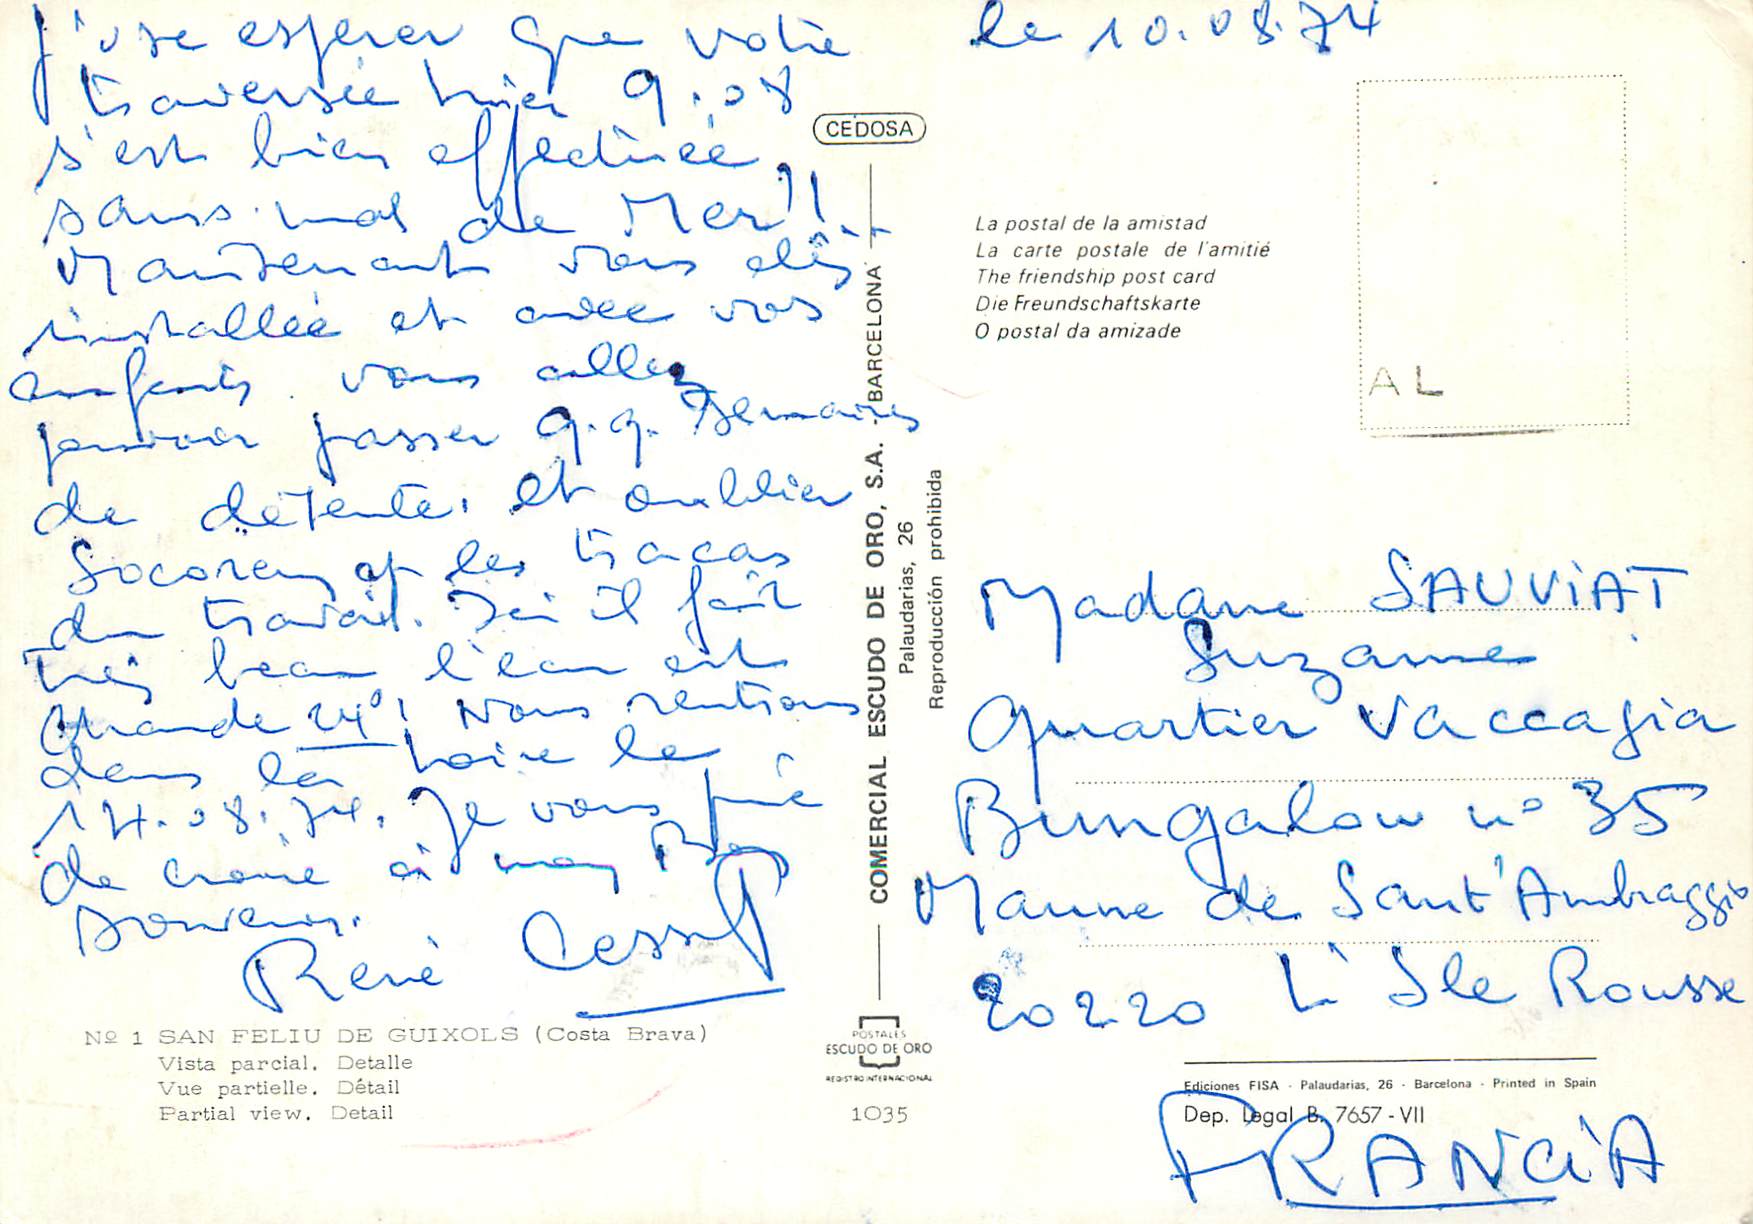 J'ose espérer que votre
traversée hier 9.08
s'est bien effectuée,
sans mal de Mer!!
Maintenant vous êtes
installée et avec vos
enfants vous allez
pouvoir passer q.q. semaines
de détente. et oublier
Socorem et les tracas
du travail. Ici il fait
très beau l'eau est
chaude 24°! Nous rentrons
dans la Loire le
14.08.74. Je vous prie
de croire à mon Bon
Souvenir.
René
Nº 1 SAN FELIU DE GUIXOLS (Costa Brava)
Vista parcial. Detalle
Vue partielle. Détail
Partial view. Detail
CEDOSA
COMERCIAL ESCUDO DE ORO, S.A. - BARCELONA
Palaudarias, 26
Reproducción prohibida
POSTALES
ESCUDO DE ORO
REGISTRO INTERNACIONAL
1035
le 10.08.74
La postal de la amistad
La carte postale de l'amitié
The friendship post card
Die Freundschaftskarte
O postal da amizade
AL
Madame SAUVIAT
Suzanne
Quartier Vaccagia
Bungalow n° 35
Marine de Sant'Ambraggio
20220 L'Ile Rousse
Ediciones FISA - Palaudarias, 26 - Barcelona - Printed in Spain
Dep. Legal B. 7657-VII
FRANCIA